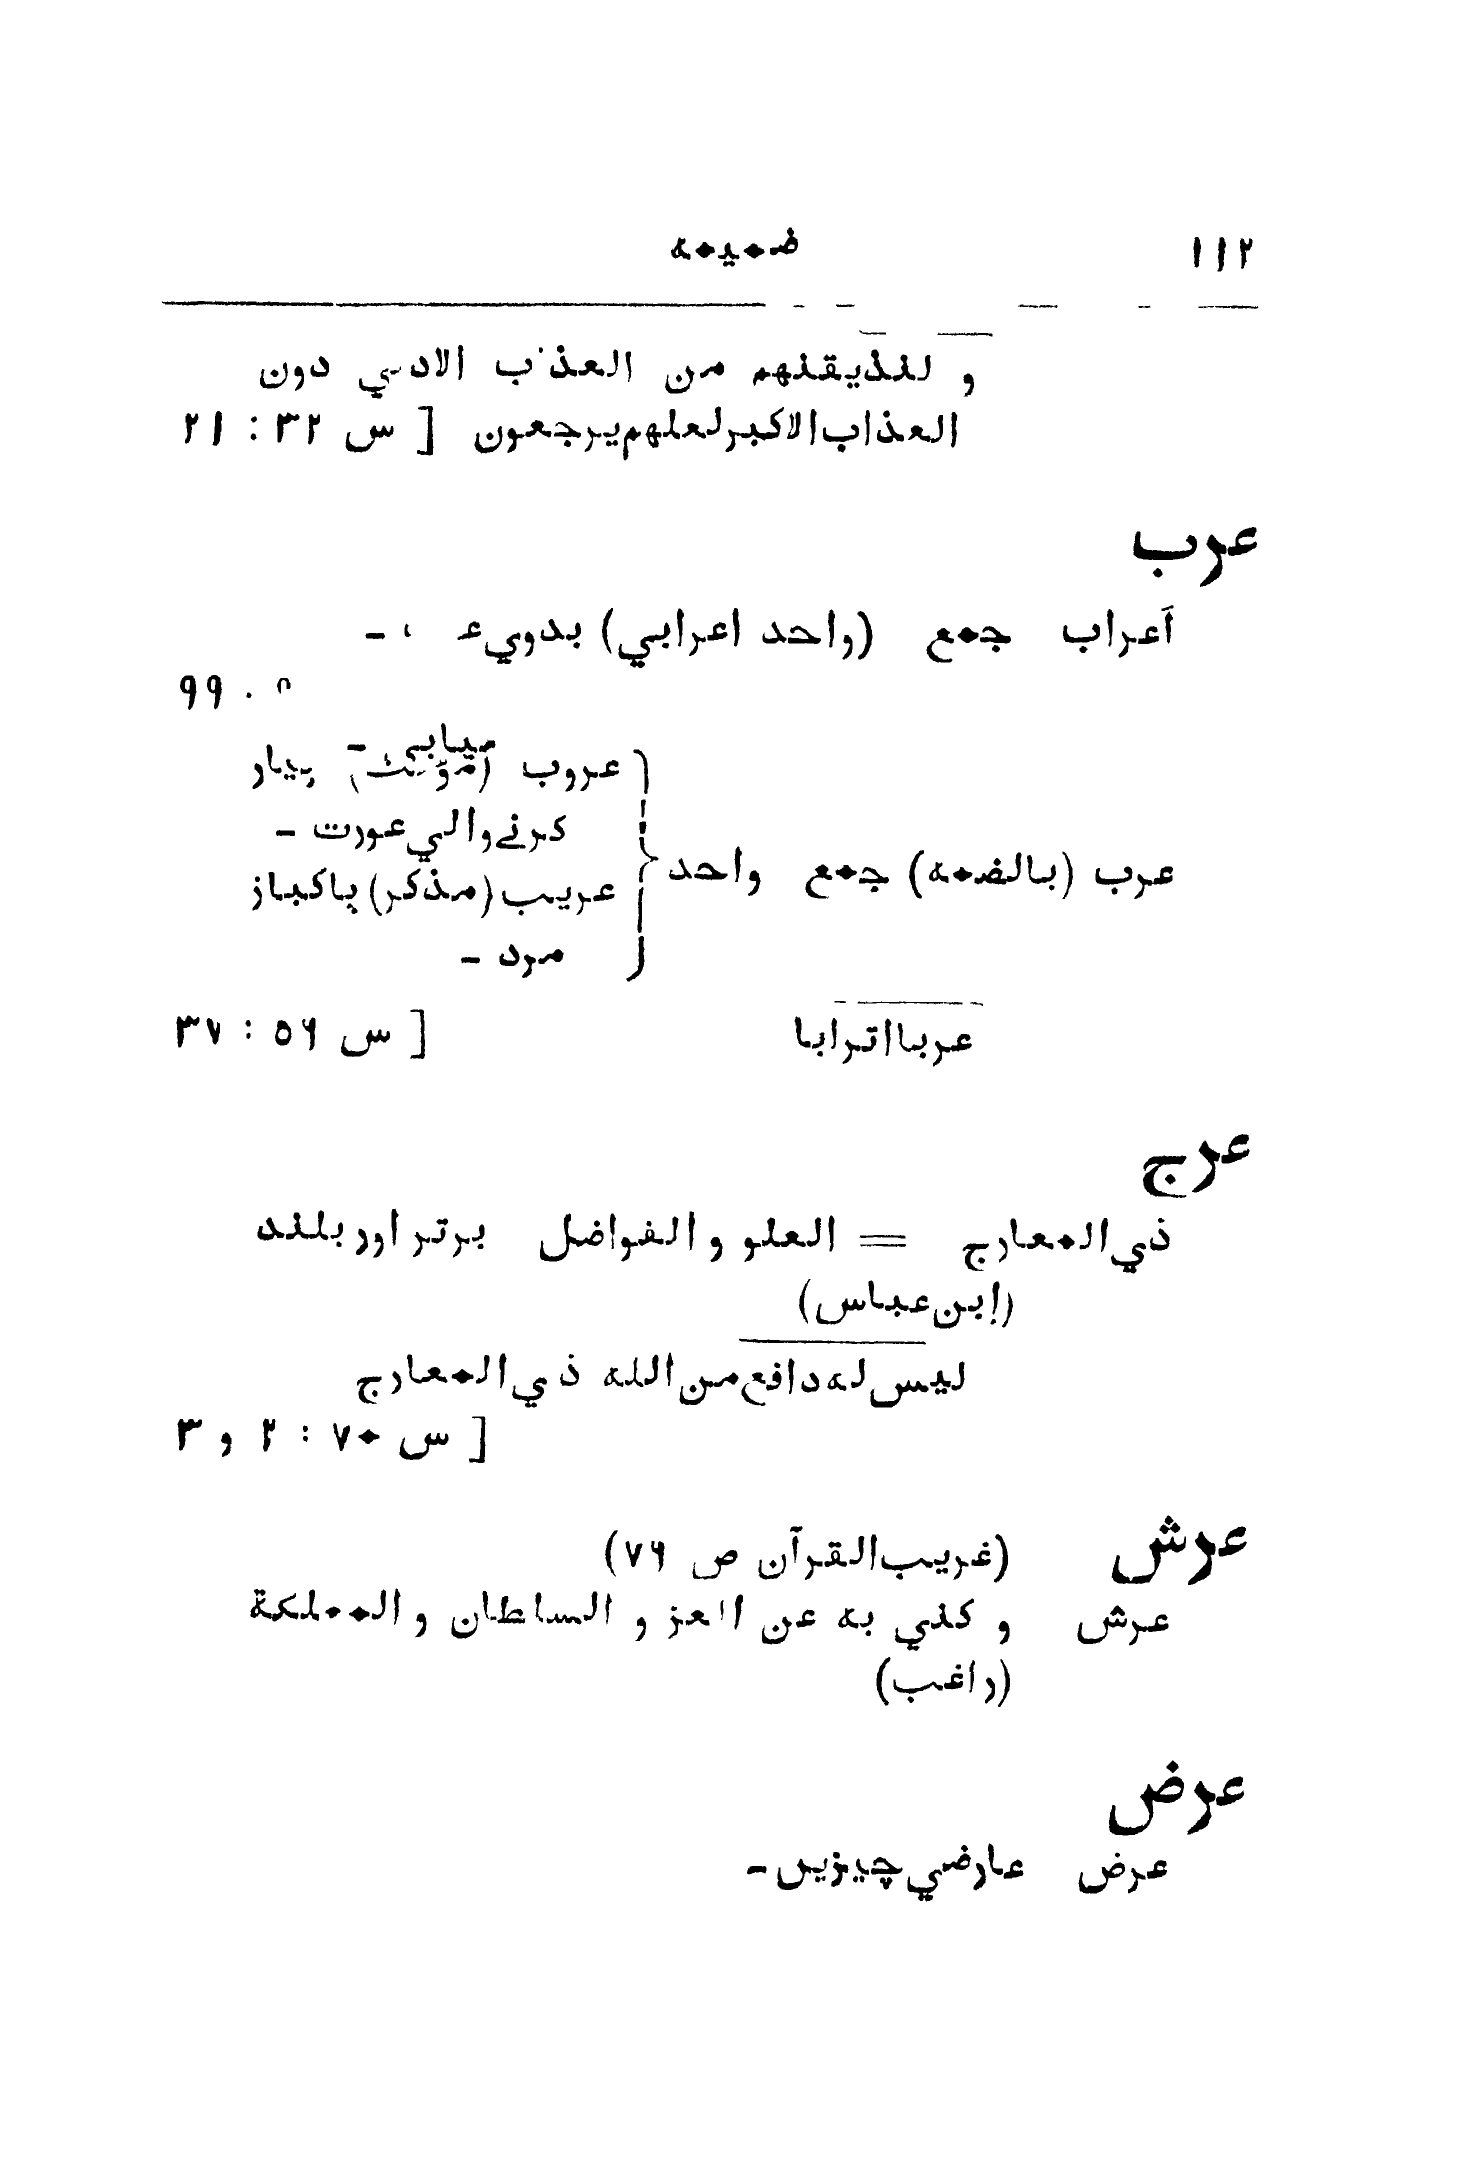 ۱۱۲ ضميمه
و لنذيقنهم من العذاب الادنى دون
العذاب الاكبر لعلهم يرجعون [ س ۳۲ : ۲۱
عرب
أعراب جمع (واحد اعرابي) بدوي -
۹۹
ميابي -
عروب (مؤنث) پيار
كرنے والي عورت -
عرب (بالضمه) جمع واحد
عريب (مذكر) پاكباز
مرد -
عربا اترابا [ س ۵۶ : ۳۷
عرج
ذي المعارج = العلو و الفواضل برتر اور بلند
(إبن عباس)
ليس له دافع من الله ذي المعارج
[ س ۷۰ : ۲ و ۳
عرش (غريب القرآن ص ۷۶)
عرش و كني به عن العز و السلطان و المملكة
(راغب)
عرض
عرض عارضي چيزيں -